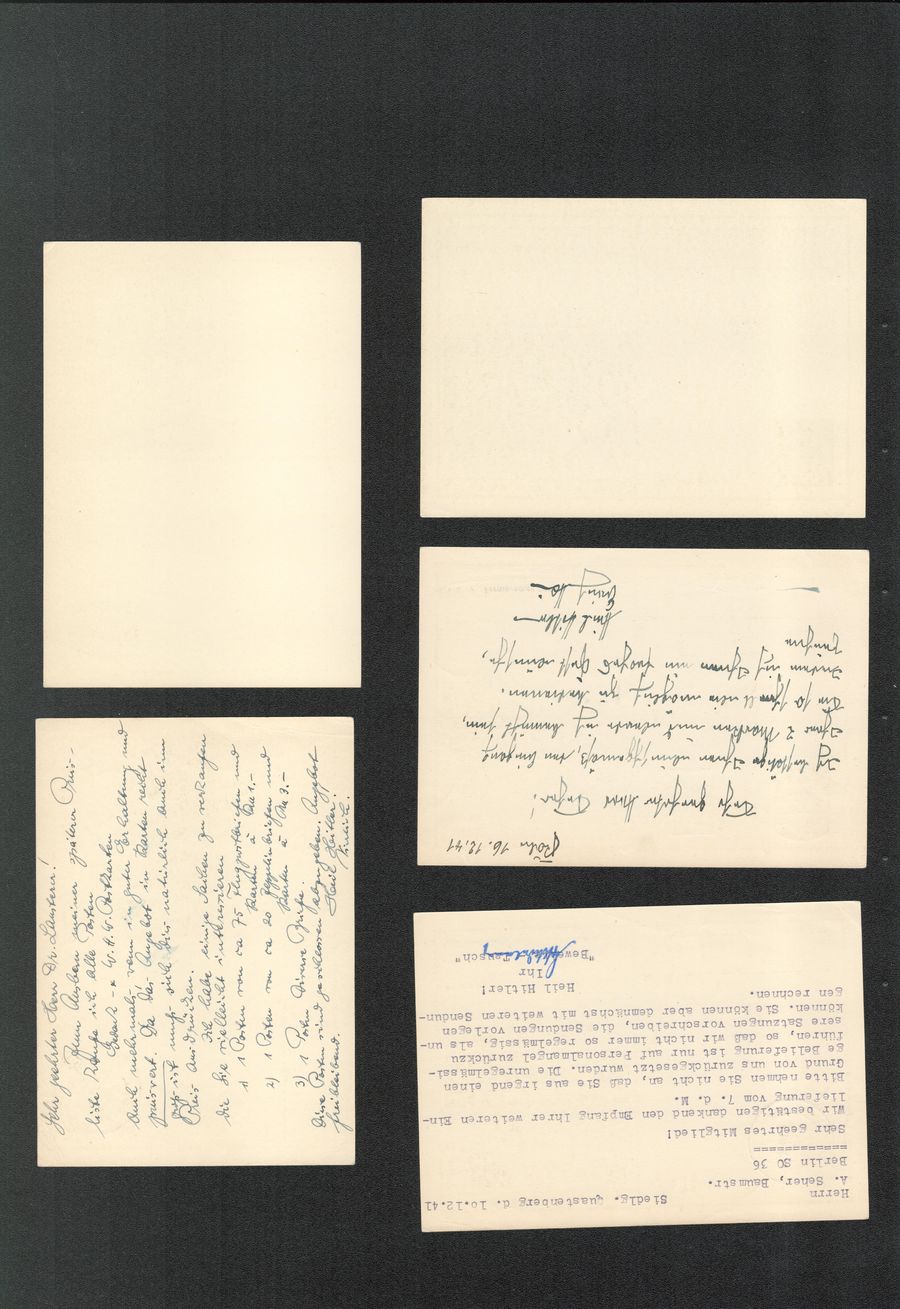 Sehr geehrter Herr Dr. Lantern!
Zum Ausbau meiner späteren Preis-
liste kaufe ich alle Posten
Gesch- * W.H.W. Postkarten
auch mehrmals, wenn in guter Erhaltung und
preiswert. Da das Angebot in Karten recht
groß ist muß sich dies natürlich auch im
Preis ausdrücken.
Ich habe einige Sachen zu verkaufen
die Sie vielleicht interessieren
1) 1 Posten von ca 75 Flugpostbriefen und
Karten à RM 1.-
2) 1 Posten von ca 20 Zeppelinbriefen und
Karten à RM 3.-
3) 1 Posten Diverse Briefe.
Diese Posten sind geschlossen abzugeben. Angebot
freibleibend. Heil Hitler!
Köln 16.12.41
Sehr geehrter Herr Seher!
Ich bestätige Ihnen wunschgemäß, den Eingang
Ihrer 2 Marken und werde ich bemüht sein,
die 10 wie möglich zu
Indem ich Ihnen ein frohes Fest wünsche,
zeichne
Heil Hitler
Siedlg. Quastenberg d. 10.12.41
Herrn
A. Seher, Baumstr.
Berlin SO 36
============
Sehr geehrtes Mitglied!
Wir bestätigen dankend den Empfang Ihrer weiteren Ein-
lieferung vom 7. d. M.
Bitte nehmen Sie nicht an, daß Sie aus irgend einen
Grund von uns zurückgesetzt wurden. Die unregelmässi-
ge Belieferung ist nur auf Personalmangel zurückzu
führen, so daß wir nicht immer so regelmässig, als un-
sere Satzungen vorschreiben, die Sendungen vorlegen
können. Sie können aber demnächst mit weiteren Sendun-
gen rechnen.
Heil Hitler!
Ihr
Tausch"